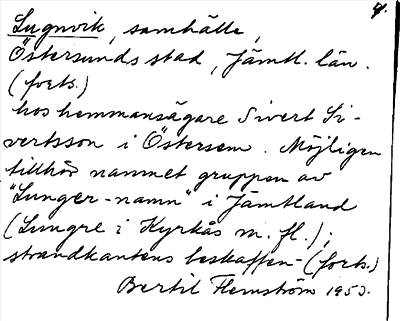 4.
Lugnvik, samhälle,
Östersunds stad, Jämtl. län.
(forts.)
hos hemmansägare Sivert Si-
vertsson i Östersem. Möjligen
tillhör namnet gruppen av
"Lunger-namn" i Jämtland
(Lungre i Kyrkås m. fl.);
strandkantens beskaffen- (forts.)
Bertil Flemström 1953.